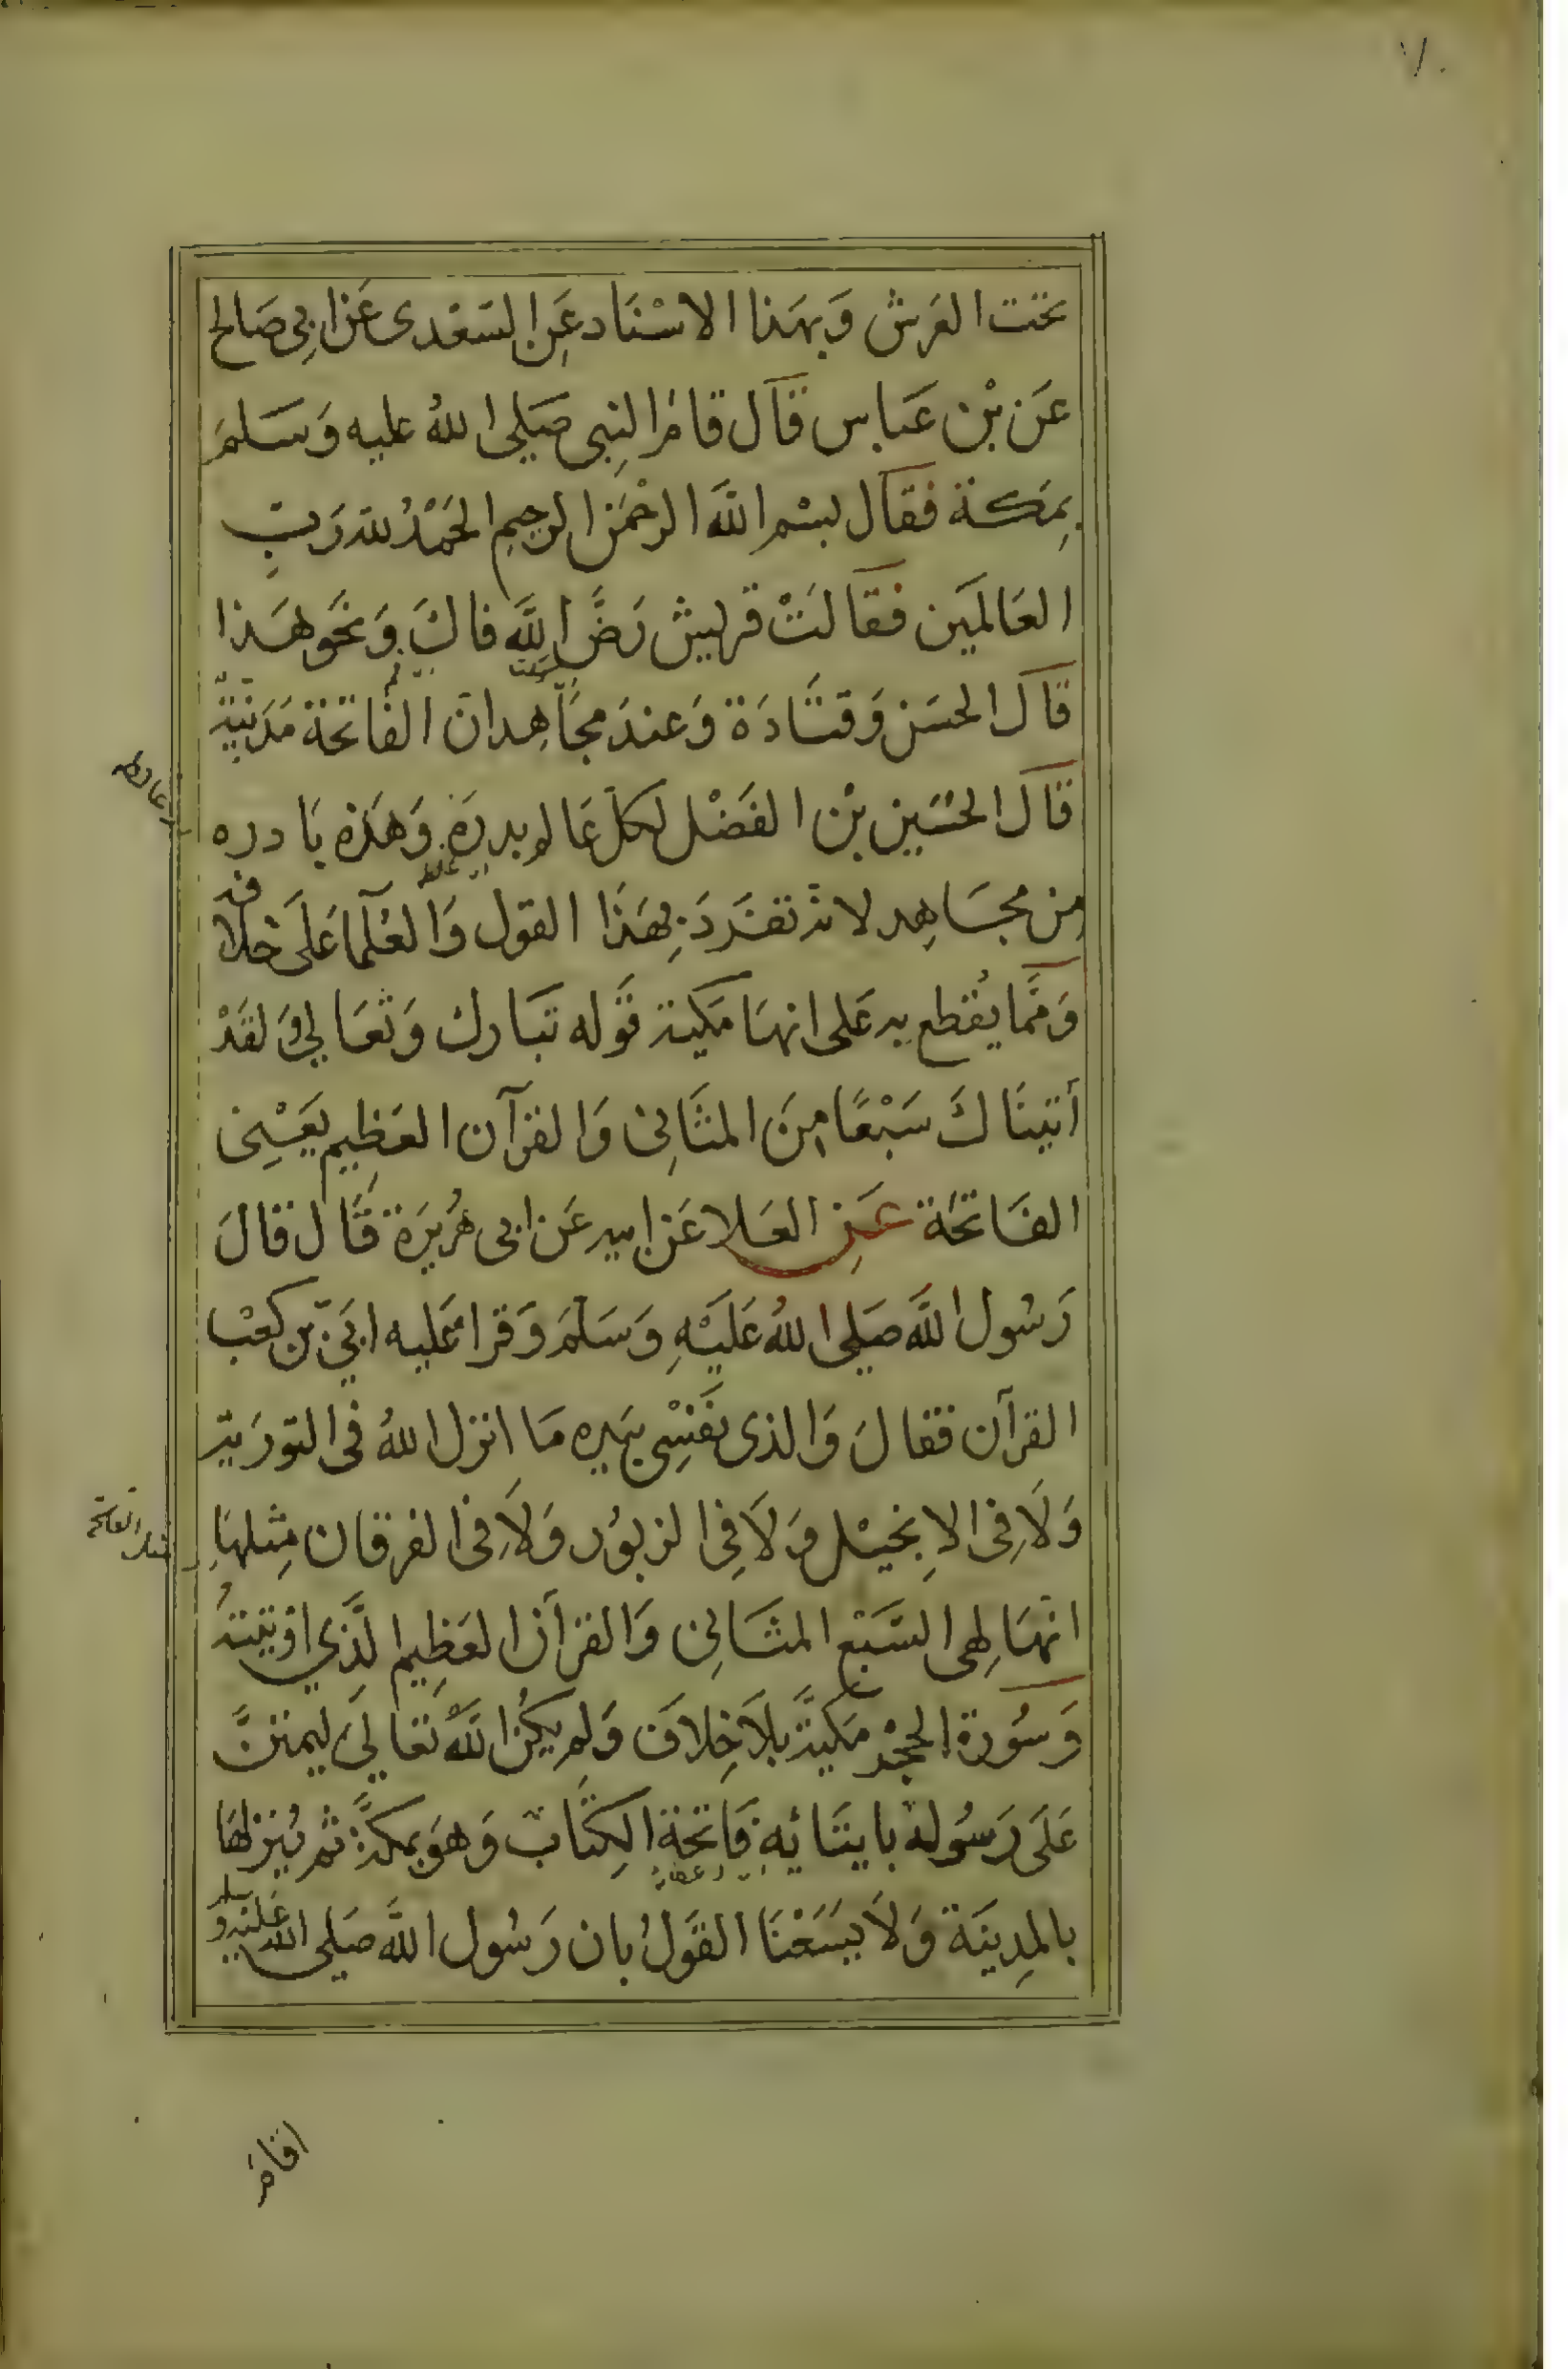 ٧٠
تحت العرش وَبهَذا الاسْنَاد عَنِ السّعْدى عَن ابِي صَالح
عَن بْن عَباس قَال قامَ النِبى صَلي اللهُ عليه وَسَلمَ
بِمَكة فقَال بسْم اللَّه الرحْمَن الرحِيمِ الحَمْدُ للّه رَبِّ
العَالمَين فقَالتْ قريش رَضَّ اللَّه فاكَ وَنحَو هَذا
قال الحسَن وَقتَادَة وَعندَ مجَاهِد انّ الفَاتحة مَدَنيّة
قال الحُسَين بْن الفَضْل لكل عَالم بدرة وَهَذه بَادره
مِن مجَاهِد لانه تفَرَدَ بِهَذا القول وَالعُلَما عَلَى خلافه
وَممَّا يُقطع به عَلى انهَا مَكية قَوله تبَارك وَتعَالي وَلقَدْ
أتينَاكَ سَبْعًا مِنَ المثَانِى وَالقرآن العَظِيم يَعْنِى
الفَاتحَة عَنِ العَلا عَن ابيه عَن ابى هُرَيرَة قَال قالَ
رَسُول اللَّه صَلي اللهُ عَليْهِ وَسَلمَ وَقرا عَليه ابَيّ بن كعْب
القرآن فقالَ وَالذى نفَسِْى بيَده مَا انزل اللهُ فى التورَية
وَلَا فِى الاِنجيْل وَلَا فِى الزبُور وَلَا فِى الفرقان مِثلهَا
انّهَا لهِى السَّبْع المثَانِى وَالقرآن العَظِيم الَّذِي اوتيتهُ
وَسُورة الحجْر مَكيَّة بلَا خِلاف وَلم يكُن اللَّهُ تعَالَي ليمتنَّ
عَلَى رَسُوله بايتَائِهِ فَاتحَة الكِتَاب وَهوَ بمكةَ ثم يُنزلهَا
بالمدِينَة وَلَا يسَعْنَا القَولُ بان رَسُول اللَّه صَلي الله عَليْه وسلم
اقامَ